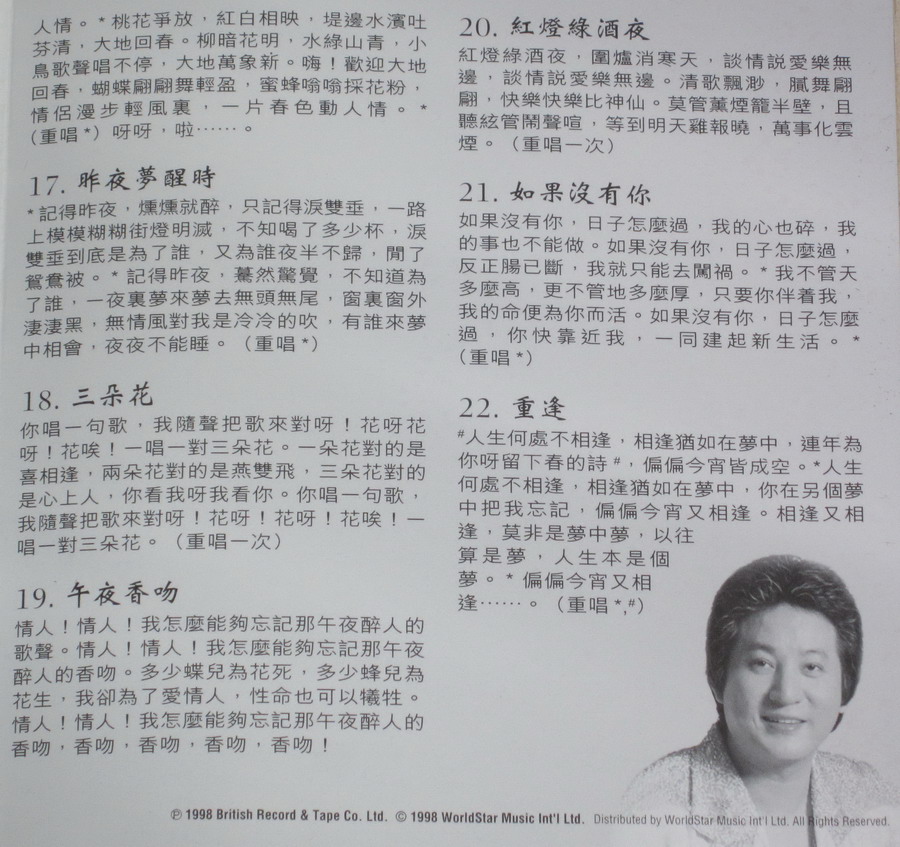 人情。*桃花爭放，紅白相映，堤邊水濱吐
芬清，大地回春。柳暗花明，水綠山青，小
鳥歌聲唱不停，大地萬象新。嗨！歡迎大地
回春，蝴蝶翩翩舞輕盈，蜜蜂嗡嗡採花粉，
情侶漫步輕風裏，一片春色動人情。*
(重唱*) 呀呀，啦……。
17. 昨夜夢醒時
*記得昨夜，燻燻就醉，只記得淚雙垂，一路
上模模糊糊街燈明滅，不知喝了多少杯，淚
雙垂到底是為了誰，又為誰夜半不歸，閒了
鴛鴦被。*記得昨夜，驀然驚覺，不知道為
了誰，一夜裏夢來夢去無頭無尾，窗裏窗外
淒淒黑，無情風對我是冷冷的吹，有誰來夢
中相會，夜夜不能睡。（重唱*）
18. 三朵花
你唱一句歌，我隨聲把歌來對呀！花呀花
呀！花唉！一唱一對三朵花。一朵花對的是
喜相逢，兩朵花對的是燕雙飛，三朵花對的
是心上人，你看我呀我看你。你唱一句歌，
我隨聲把歌來對呀！花呀！花呀！花唉！一
唱一對三朵花。（重唱一次）
19. 午夜香吻
情人！情人！我怎麼能夠忘記那午夜醉人的
歌聲。情人！情人！我怎麼能夠忘記那午夜
醉人的香吻。多少蝶兒為花死，多少蜂兒為
花生，我卻為了愛情人，性命也可以犧牲。
情人！情人！我怎麼能夠忘記那午夜醉人的
香吻，香吻，香吻，香吻，香吻！
20. 紅燈綠酒夜
紅燈綠酒夜，圍爐消寒天，談情説愛樂無
邊，談情説愛樂無邊。清歌飄渺，膩舞翩
翩，快樂快樂比神仙。莫管薰煙籠半壁，且
聽絃管鬧聲喧，等到明天雞報曉，萬事化雲
煙。（重唱一次）
21. 如果沒有你
如果沒有你，日子怎麼過，我的心也碎，我
的事也不能做。如果沒有你，日子怎麼過，
反正腸已斷，我就只能去闖禍。*我不管天
多麼高，更不管地多麼厚，只要你伴着我，
我的命便為你而活。如果沒有你，日子怎麼
過，你快靠近我，一同建起新生活。*
（重唱*）
22. 重逢
#人生何處不相逢，相逢猶如在夢中，連年為
你呀留下春的詩#，偏偏今宵皆成空。*人生
何處不相逢，相逢猶如在夢中，你在另個夢
中把我忘記，偏偏今宵又相逢。相逢又相
逢，莫非是夢中夢，以往
算是夢，人生本是個
夢。*偏偏今宵又相
逢……。（重唱*,#）
℗ 1998 British Record & Tape Co. Ltd. © 1998 WorldStar Music Int'l Ltd. Distributed by WorldStar Music Int'l Ltd. All Rights Reserved.